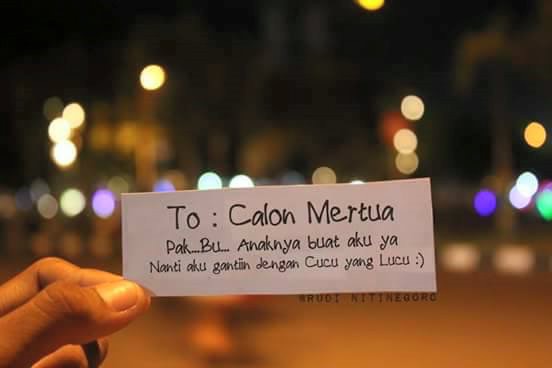 To : Calon Mertua
Pak...Bu... Anaknya buat aku ya
Nanti aku gantiin dengan Cucu yang Lucu :)
@RUDI NITINEGORO